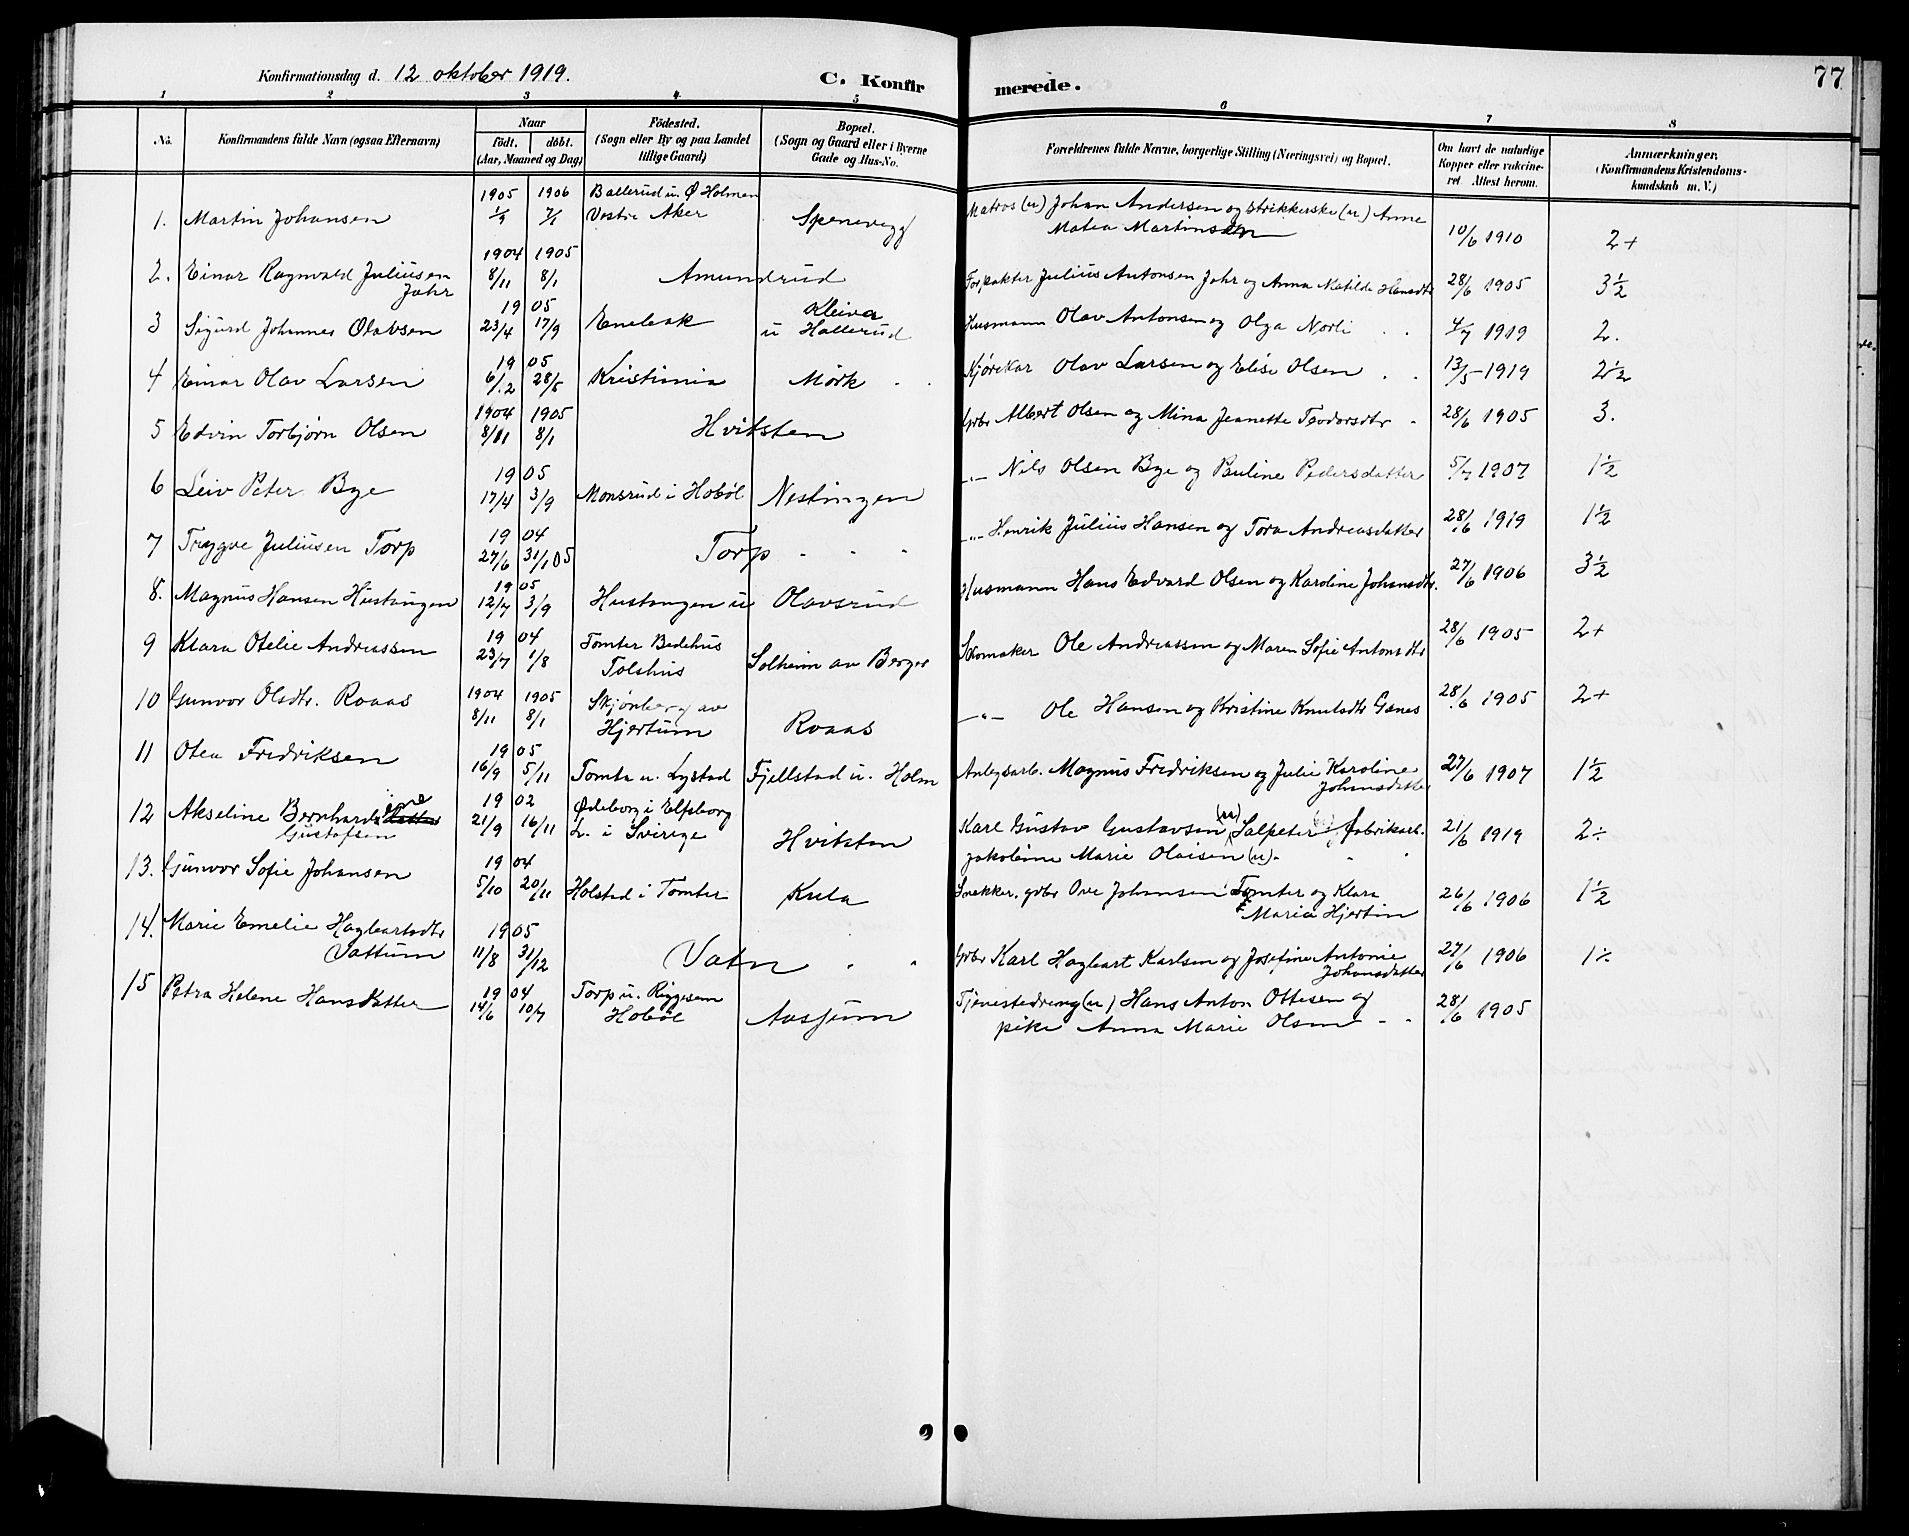 Konfirmationsdag d. 12 oktober 1919.
C. Konfirmerede.
77
1 2 3 4 5 6 7 8
No. Konfirmandens fulde Navn (ogsaa Efternavn)
Naar
født. døbt.
(Aar, Maaned og Dag)
Fødested.
(Sogn eller By og paa Landet
tillige Gaard)
Bopæl.
(Sogn og Gaard eller i Byerne
Gade og Hus-No.
Forældrenes fulde Navne, borgerlige Stilling (Næringsvei) og Bopæl.
Om havt de naturlige
Kopper eller vakcine-
ret Attest herom.
Anmærkninger.
(Konfirmandens Kristendoms-
kundskab m. V.)
1905 1906 Ballerud u. Ø Holmen
1. Martin Johansen 1/9 7/1 Vestre Aker Spenevegg Matros (u) Johan Andersen og strikkerske (u) Anne
Matea Martinsen 10/6 1910 2+
1904 1905
2. Einar Ragnvald Juliusen 8/11 8/1 Amundrud Forpakter Julius Antonsen Jahr og Anna Matilde Hansdtr 28/6 1905 3 1/2
Jahr
19 05 Kleiva
3 Sigurd Johannes Olavsen 23/4 17/9 Enebak u Hallerud Husmann Olav Antonsen og Olga Norli 4/7 1919 2.
19 05
4 Einar Olav Larsen 6/2 28/5 Kristiania Mörk Kjørekar Olav Larsen og Elise Olsen 13/5 1919 2 1/2
1904 1905
5 Edvin Torbjørn Olsen 8/11 8/1 Hvitsten Grbr Albert Olsen og Mina Jeanette Teodorsdtr 28/6 1905 3.
19 05
6 Leiv Peter Bye 17/4 3/9 Monsrud i Hobøl Nestingen -"- Nils Olsen Bye og Pauline Pedersdatter 5/7 1907 1 1/2
19 04
7 Trygve Juliusen Torp 27/6 31/1 05 Torp -"- Henrik Julius Hansen og Tora Andreasdatter 28/6 1919 1 1/2
19 05
8. Magnus Hansen Hustangen 12/7 3/9 Hustangen u Olavsrud Husmann Hans Edvard Olsen og Karoline Johansdtr. 27/6 1906 3 1/2
19 04 Tomter Bedehus
9 Klara Otelie Andreassen 23/7 1/8 Tolshus Solheim av Berger Skomaker Ole Andreassen og Maren Sofie Antonsdtr 28/6 1905 2+
1904 1905 Skjønberg av
10 Gunvor Olsdtr. Roaas 8/11 8/1 Hjertum Roaas -"- Ole Hansen og Kristine Knutsdtr Gaces 28/6 1905 2+
19 05
11 Otea Fredriksen 16/9 5/11 Tomta u. Lystad Fjellstad u. Holm Anlegsarb. Magnus Fredriksen og Julie Karoline
Johansdatter 27/6 1907 1 1/2
19 02 Ødeborg i Elfsborg
12 Akseline Bernhardine 21/9 16/11 L. i Sverige Hvitsten Karl Gustav Gustavsen (u) Salpeter fabrikarb.
Gustafsen Jakobine Marie Olaisen (u) 21/6 1919 2÷
19 04
13. Gunvor Sofie Johansen 5/10 20/11 Holstad i Tomter Kula Snekker, grbr Ove Johansen Tomter og Klara
Marie Hjertin 26/6 1906 1 1/2
14. Marie Emelie Hagbartsdtr 19 05
Vattum 11/8 31/12 Vatn Grbr Karl Hagbart Karlsen og Josefine Antonie
Johansdatter 27/6 1906 1÷
19 04 Torp u. Riggesem
15 Petra Helene Hansdatter 14/6 10/7 Hobøl Aasgum Tjenestedreng (u) Hans Anton Ottesen og
pike Anna Marie Olsen 28/6 1905